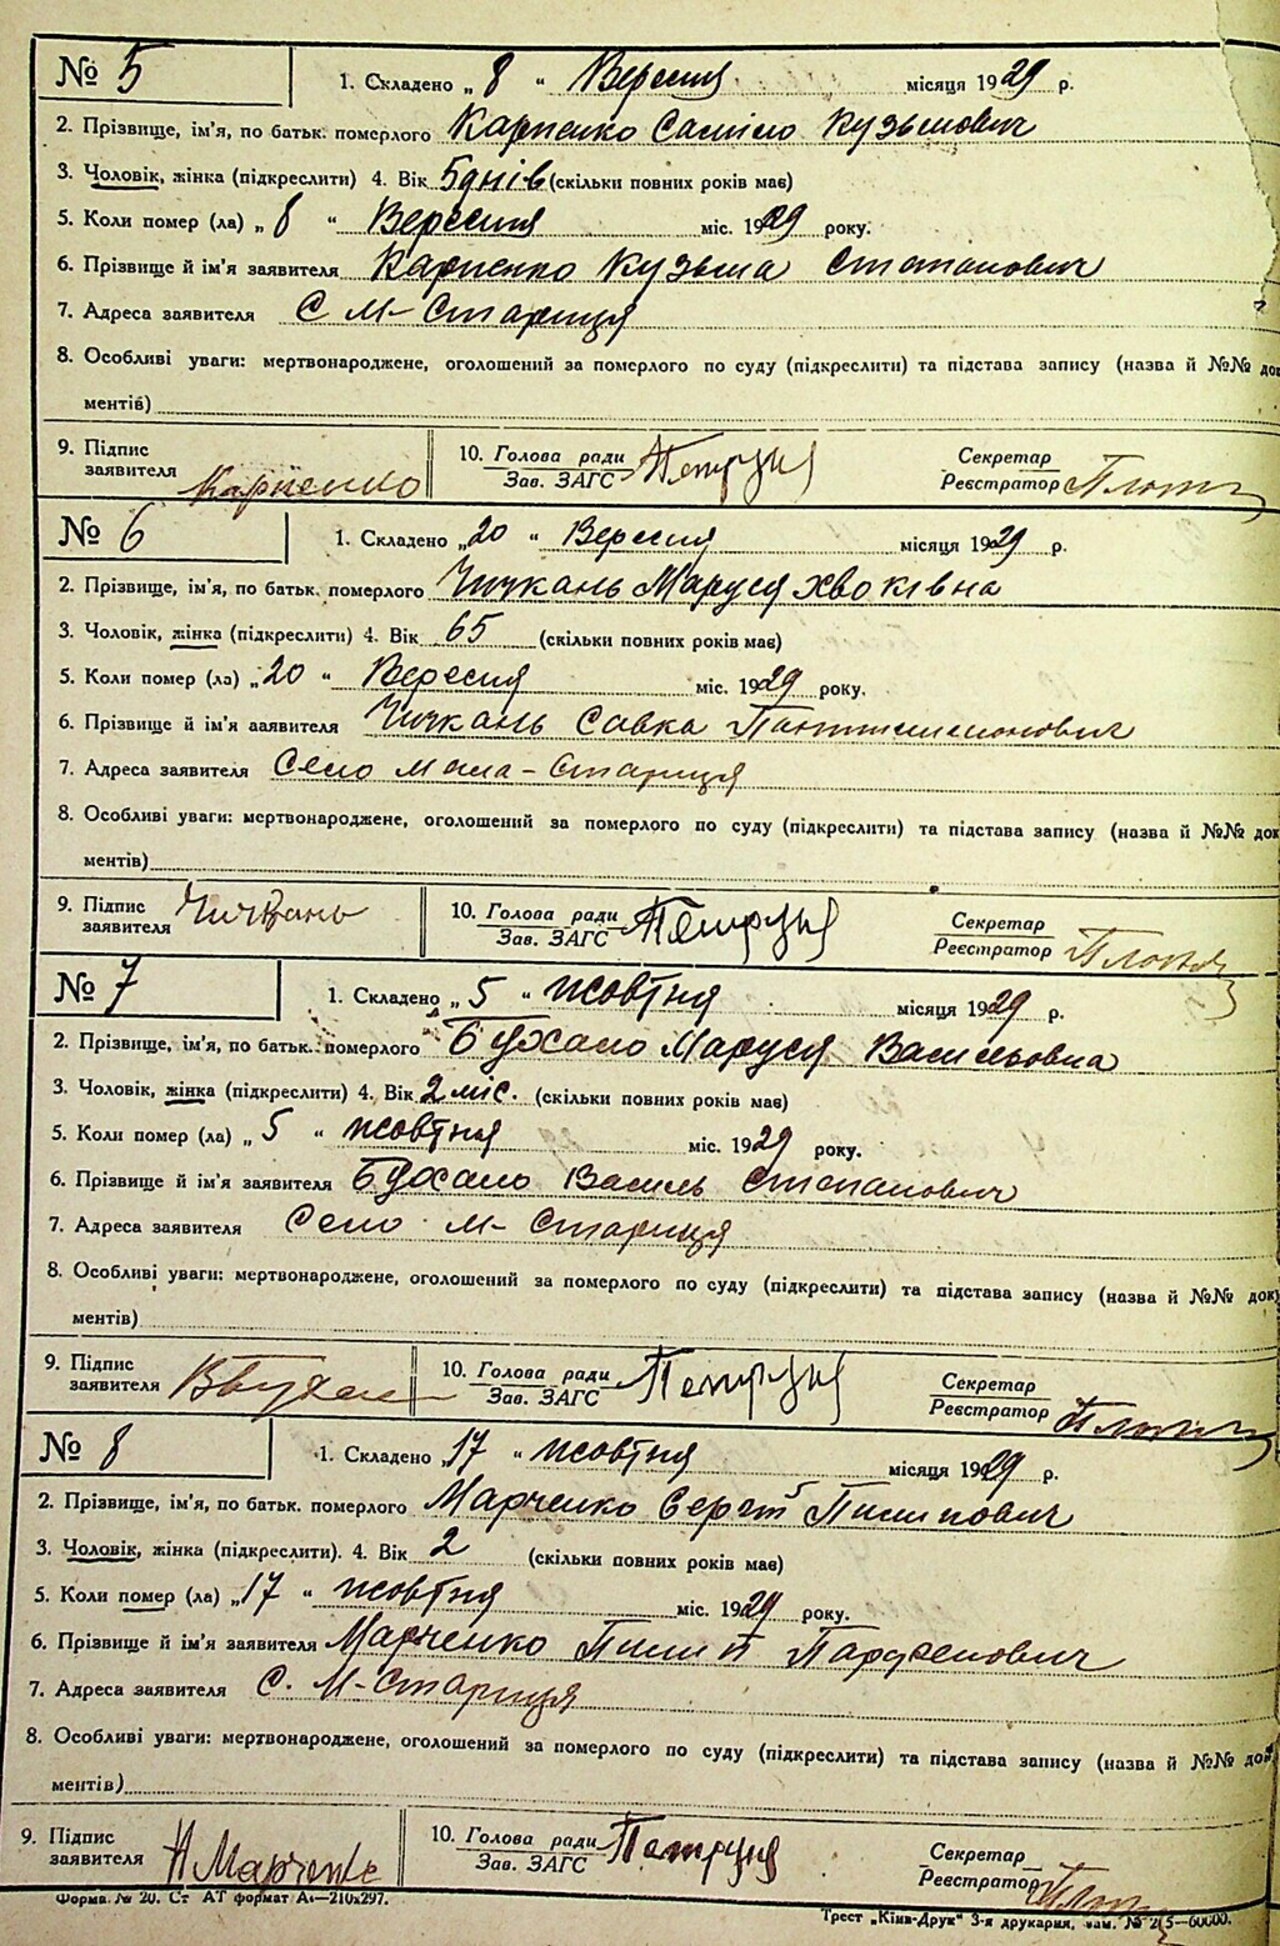 № 5 1. Складено „ 8 “ Вересня місяця 1929 р.
2. Прізвище, ім'я, по батьк. померлого Карпенко Кузьмович
3. Чоловік, жінка (підкреслити) 4. Вік 5 днів (скільки повних років має)
5. Коли помер (ла) „ 8 “ Вересня міс. 1929 року.
6. Прізвище й ім'я заявителя Карпенко Кузьма Степанович
7. Адреса заявителя С М-Стариця
8. Особливі уваги: мертвонароджене, оголошений за померлого по суду (підкреслити) та підстава запису (назва й №№ док
ментів)
9. Підпис заявителя Карпенко 10. Голова ради Зав. ЗАГС Секретар Реєстратор
№ 6 1. Складено „20 “ Вересня місяця 1929 р.
2. Прізвище, ім'я, по батьк. померлого Чичкань Маруся Хвоківна
3. Чоловік, жінка (підкреслити) 4. Вік 65 (скільки повних років має)
5. Коли помер (ла) „20 “ Вересня міс. 1929 року.
6. Прізвище й ім'я заявителя Чичкань Савка
7. Адреса заявителя Село Мала-Стариця
8. Особливі уваги: мертвонароджене, оголошений за померлого по суду (підкреслити) та підстава запису (назва й №№ док
ментів)
9. Підпис заявителя Чичкань 10. Голова ради Зав. ЗАГС Секретар Реєстратор
№ 7 1. Складено „ 5 “ жовтня місяця 1929 р.
2. Прізвище, ім'я, по батьк. померлого Бухало Маруся Васильовна
3. Чоловік, жінка (підкреслити) 4. Вік 2 міс. (скільки повних років має)
5. Коли помер (ла) „ 5 “ жовтня міс. 1929 року.
6. Прізвище й ім'я заявителя Бухало Василь Степанович
7. Адреса заявителя Село М-Стариця
8. Особливі уваги: мертвонароджене, оголошений за померлого по суду (підкреслити) та підстава запису (назва й №№ док
ментів)
9. Підпис заявителя 10. Голова ради Зав. ЗАГС Секретар Реєстратор
№ 8 1. Складено „17 “ жовтня місяця 1929 р.
2. Прізвище, ім'я, по батьк. померлого Марченко Сергій Пилипович
3. Чоловік, жінка (підкреслити). 4. Вік 2 (скільки повних років має)
5. Коли помер (ла) „17 “ жовтня міс. 1929 року.
6. Прізвище й ім'я заявителя Марченко Пилип Парфенович
7. Адреса заявителя С. М-Стариця
8. Особливі уваги: мертвонароджене, оголошений за померлого по суду (підкреслити) та підстава запису (назва й №№ док
ментів)
9. Підпис заявителя Марченко 10. Голова ради Зав. ЗАГС Секретар Реєстратор
Форма № 20. Ст АТ формат А4—210х297.
Трест „Київ-Друк“ 3-я друкарня, зам. №